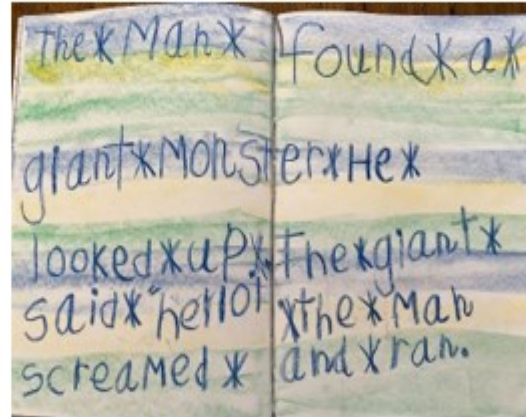 The*Man* found*a*
giant*Monster.*He*
looked*up*. The*giant*
said*"hello!" *the*Man
screaMed* and*ran.